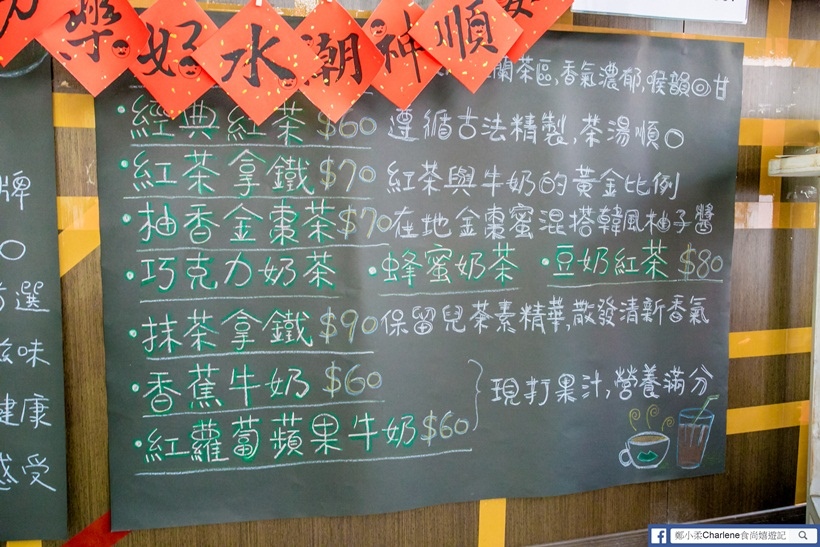 樂 好 水 潮 神 順 好
蘭茶區,香氣濃郁,喉韻◎甘
・經典紅茶 $60 遵循古法精製,茶湯順○
・紅茶拿鐵 $70 紅茶與牛奶的黃金比例
・柚香金棗茶 $70 在地金棗蜜混搭韓風柚子醬
・巧克力奶茶 ・蜂蜜奶茶 ・豆奶紅茶 $80
・抹茶拿鐵 $90 保留兒茶素精華,散發清新香氣
・香蕉牛奶 $60
現打果汁,營養滿分
・紅蘿蔔蘋果牛奶 $60
牌
○
選
滋味
健康
感受
鄭小柔Charlene食尚嬉遊記